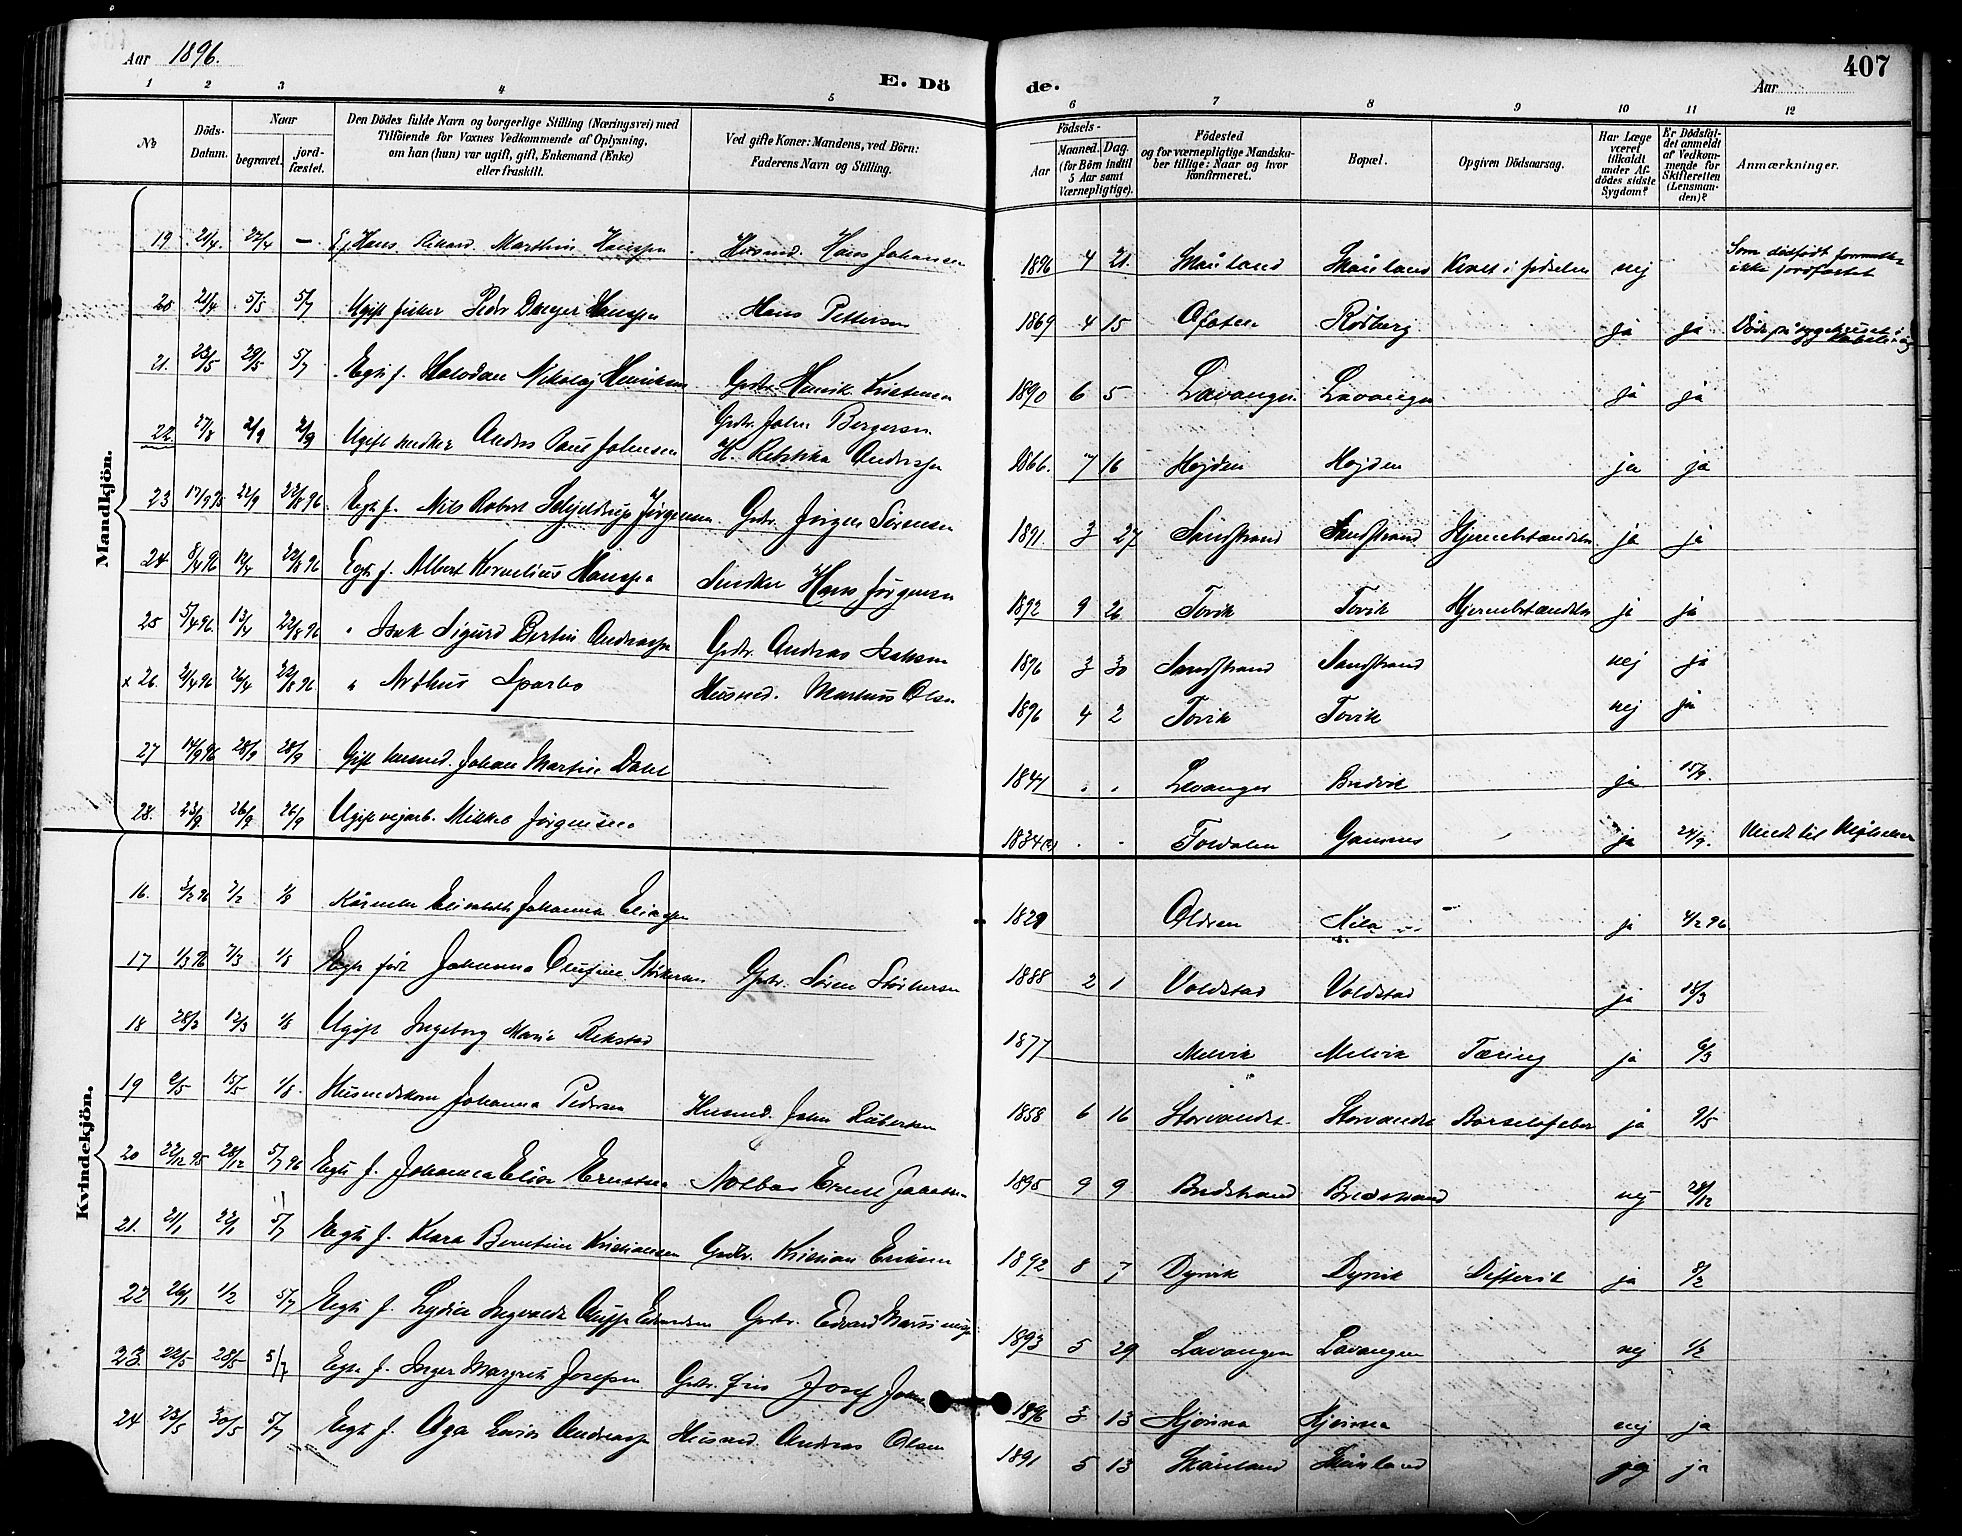 Aar 1896.
E. Dö
de.
Aar
407
1 2 3 4 5 6 7 8 9 10 11 12
No
Döds-Datum.
Naar
begravet.
jord-fæstet.
Den Dödes fulde Navn og borgerlige Stilling (Næringsvei) med
Tilföiende for Voxnes Vedkommende af Oplysning,
om han (hun) var ugift, gift, Enkemand (Enke)
eller fraskilt.
Ved gifte Koner: Mandens, ved Börn:
Faderens Navn og Stilling.
Födsels-
Aar
Maaned. Dag.
(for Börn indtil
5 Aar samt
Værnepligtige).
Födested
og for værnepligtige Mandska-
ber tillige: Naar og hvor
konfirmeret.
Bopæl.
Opgiven Dödsaarsag.
Har Læge
været
tilkaldt
under Af-
dödes sidste
Sygdom?
Er Dödsfal-
det anmeldt
af Vedkom-
mende for
Skifteretten
(Lensman-
den)?
Anmærkninger.
Mandkjön.
19 21/4. 22/4 — Hans Rikard Marthin Hanssen Husmd. Hans Johansen 1896 4 21. Skånland Skånland Kvalt i fødselen nej Som dødfødt
ikke jordfæstet
20 21/4 5/5 5/7 Ugift fisker Peder Dreyer Hanssen Hans Pettersen 1869 4 15 Ofoten Rødberg ja ja
21. 23/5 29/5 5/7 Egte f. Halvdan Nikolaj Henriksen Grdbr. Henrik Kristensen 1890 6 5 Lavangen Lavangen ja ja
22. 27/8 2/9 2/9 Ugift snedker Anders Paul Johnsen Grdbr. John Bergersen
H. Rebekka Anderssen 1866. 7 16 Højden Højden ja ja
23 17/9 95 22/9 22/8 96 Egte f. Nils Robert Schjeldrup Jørgensen Grdbr. Jørgen Sørensen 1891. 3 27 Sandstrand Sandstrand Hjernebetændelse ja ja
24 8/4 96 12/4 22/8 96 Egte f. Albert Kornelius Hanssen Snedker Hans Jørgensen 1892 9 26 Tovik Tovik Hjernebetændelse ja ja
25 5/4 96. 13/4 22/8 96 " Isak Sigurd Bertin Andreassen Grdbr. Andreas Isaksen 1896 3 30 Sandstrand Sandstrand nej ja
x 26. 21/4 96 26/4 22/8 96 " Arthus Sparbo Husmd. Martinus Olsen 1896 4 2 Tovik Tovik nej ja
27 14/9 96 28/9 28/9 Gift husmd. Johan Martin Dahl 1847 " " Levanger Bredvik ja 15/9.
28. 23/9 26/9 26/9 Ugift vejarb. Mikkel Jørgensen 1834 (?) " " Foldalen Gamnes ja 24/9.
Kvindekjön.
16. 3/2 96 7/2 1/8 Elisabeth Johanna Eliassen 1829 Oldren Kila ja 4/2 96
17 1/3 96 7/3 1/8 Egte født Johanna Olufine Størkersen Grdbr. Søren Størkersen 1888 2 1 Voldstad Voldstad ja 18/3
18 28/3 12/3 1/8 Ugift Ingeborg Marie Rekstad 1877 Melvik Melvik Tæring ja 6/3
19 6/5 15/5 1/8. Husmdskone Johanna Pedersen Husmd. John 1858 6 16 Storvandet Storvandet Barselsfeber ja 9/5
20 22/12 95 28/12 5/7 96 Egte f. Johanna Elise Ernstsen Ernst 1895 9 9 Bredstrand Bredstrand nej 28/12
21. 21/1 22/1 5/7 Egte f. Klara Berntine Kristiansen Grdbr. Kristian Eriksen 1892 8 7 Dyrvik Dyrvik Difterit ja 8/2
22 26/1 1/2 5/7 Egte f. Lydia Ingvalda Edvardsen Grdbr. Edvard 1893 5 29 Lavangen Lavangen nej 1/2
23. 22/5 28/5 5/7 Egte f. Inger Margrete Josefsen Grdbr. Josef 1896 3 13 Hjønna Hjønna nej ja
24 23/5 30/5 5/7 Egte f. Aga Lovise Andreassen Husmd. Andreas Olsen 1891 5 13 Skånland Skånland nej ja